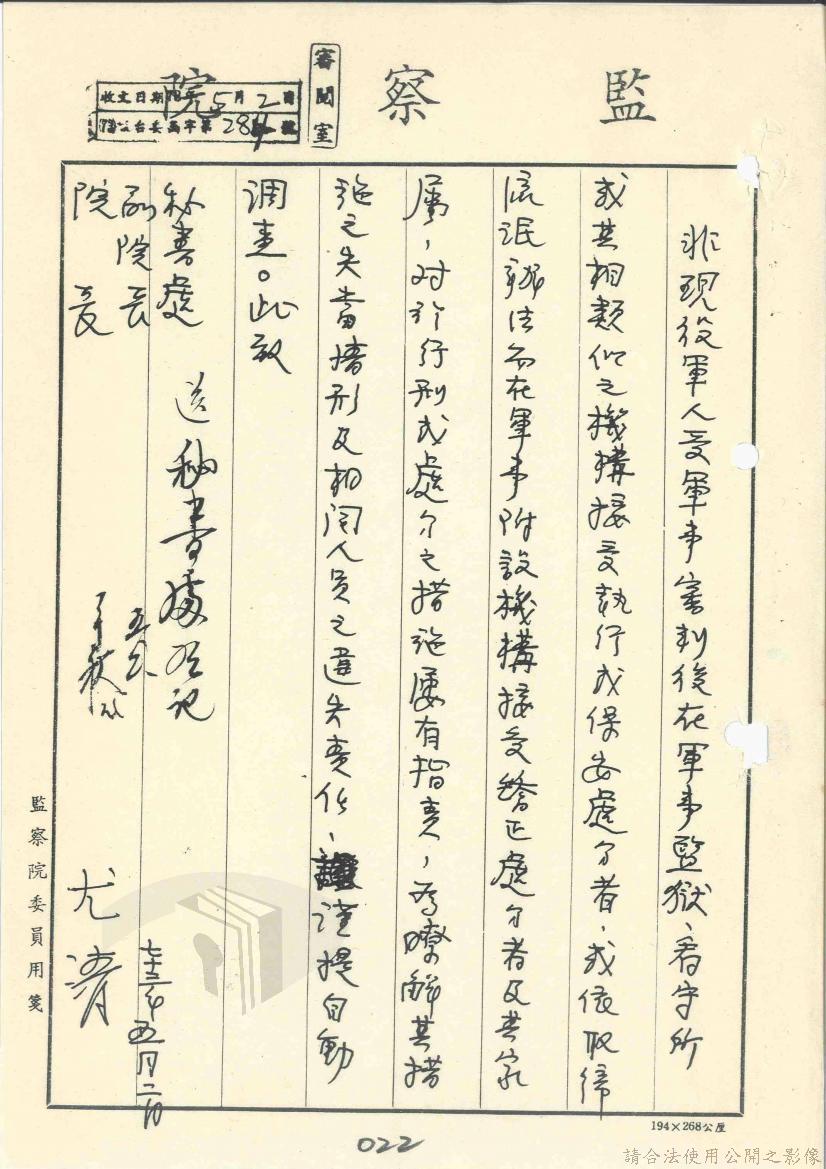 監察院
審閱室
收文日期73年5月2日
非現役軍人受軍事審判後在軍事監獄、看守所
或其相類似之機構接受執行或保安處分者,或依取締
流氓辦法而在軍事附設機構接受矯正處分者及其家
屬,对於行刑或處分之措施屢有指責,為瞭解其措
施之失當情形及相関人員之違失責任、謹提自動
调查。此致
秘書處
副院長
院長
送秘書處登記
尤清
七十三年五月二日
監察院委員用箋
194×268公厘
022
請合法使用公開之影像